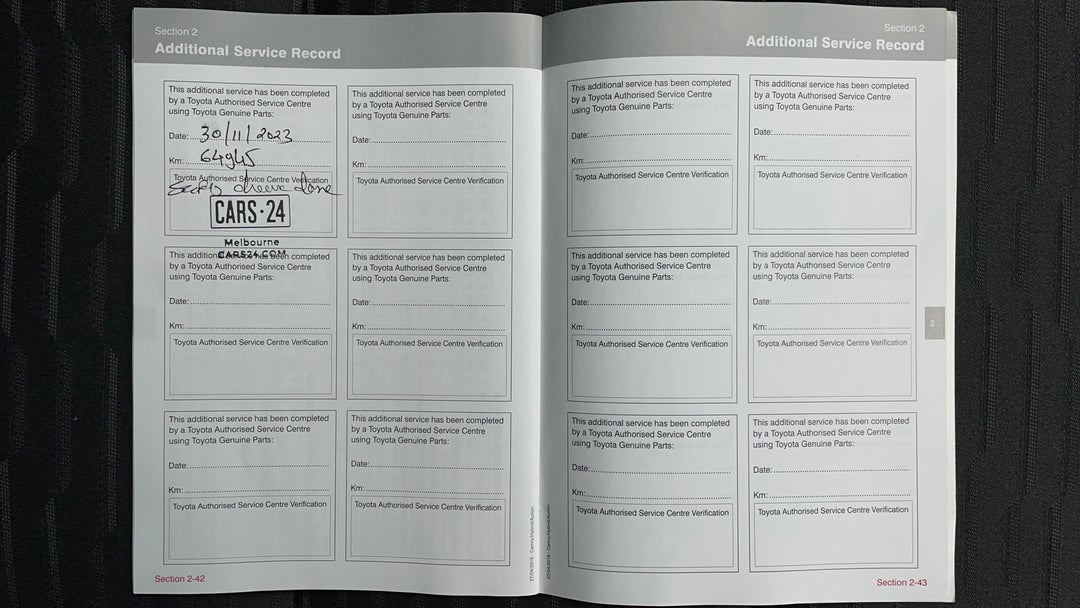 Section 2
Additional Service Record
This additional service has been completed
by a Toyota Authorised Service Centre
using Toyota Genuine Parts:
Date: 30/11/2023
Km: 64945
Toyota Authorised Service Centre Verification
done
CARS·24
Melbourne
CARS24.COM
This additional service has been completed
by a Toyota Authorised Service Centre
using Toyota Genuine Parts:
Date:
Km:
Toyota Authorised Service Centre Verification
This additional service has been completed
by a Toyota Authorised Service Centre
using Toyota Genuine Parts:
Date:
Km:
Toyota Authorised Service Centre Verification
This additional service has been completed
by a Toyota Authorised Service Centre
using Toyota Genuine Parts:
Date:
Km:
Toyota Authorised Service Centre Verification
This additional service has been completed
by a Toyota Authorised Service Centre
using Toyota Genuine Parts:
Date:
Km:
Toyota Authorised Service Centre Verification
This additional service has been completed
by a Toyota Authorised Service Centre
using Toyota Genuine Parts:
Date:
Km:
Toyota Authorised Service Centre Verification
Section 2-42
Section 2
Additional Service Record
This additional service has been completed
by a Toyota Authorised Service Centre
using Toyota Genuine Parts:
Date:
Km:
Toyota Authorised Service Centre Verification
This additional service has been completed
by a Toyota Authorised Service Centre
using Toyota Genuine Parts:
Date:
Km:
Toyota Authorised Service Centre Verification
This additional service has been completed
by a Toyota Authorised Service Centre
using Toyota Genuine Parts:
Date:
Km:
Toyota Authorised Service Centre Verification
This additional service has been completed
by a Toyota Authorised Service Centre
using Toyota Genuine Parts:
Date:
Km:
Toyota Authorised Service Centre Verification
2
This additional service has been completed
by a Toyota Authorised Service Centre
using Toyota Genuine Parts:
Date:
Km:
Toyota Authorised Service Centre Verification
This additional service has been completed
by a Toyota Authorised Service Centre
using Toyota Genuine Parts:
Date:
Km:
Toyota Authorised Service Centre Verification
Section 2-43